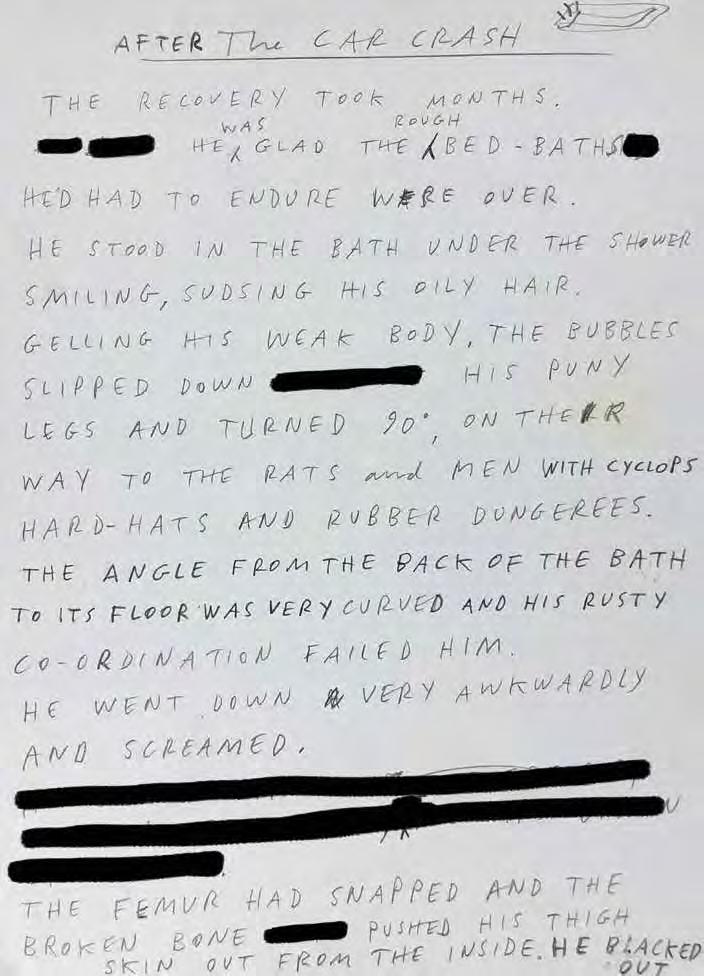 AFTER The CAR CRASH
THE RECOVERY TOOK MONTHS.
HE WAS GLAD THE ROUGH BED-BATHS
HE'D HAD TO ENDURE WERE OVER.
HE STOOD IN THE BATH UNDER THE SHOWER
SMILING, SUDSING HIS OILY HAIR.
GELLING HIS WEAK BODY, THE BUBBLES
SLIPPED DOWN HIS PUNY
LEGS AND TURNED 90°, ON THEIR
WAY TO THE RATS and MEN WITH CYCLOPS
HARD-HATS AND RUBBER DUNGEREES.
THE ANGLE FROM THE BACK OF THE BATH
TO ITS FLOOR WAS VERY CURVED AND HIS RUSTY
CO-ORDINATION FAILED HIM.
HE WENT DOWN VERY AWKWARDLY
AND SCREAMED.
THE FEMUR HAD SNAPPED AND THE
BROKEN BONE PUSHED HIS THIGH
SKIN OUT FROM THE INSIDE. HE BLACKED
OUT